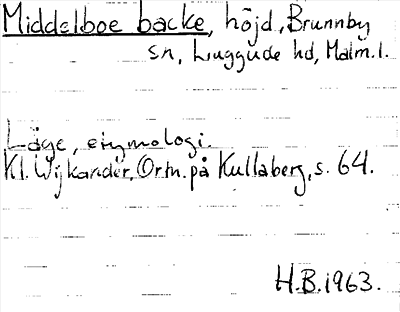 Middelboe backe, höjd, Brunnby
sn, Luggude hd, Malm.l.
Läge, etymologi.
Kl. Wijkander, Ortn. på Kullaberg, s. 64.
H.B. 1963.